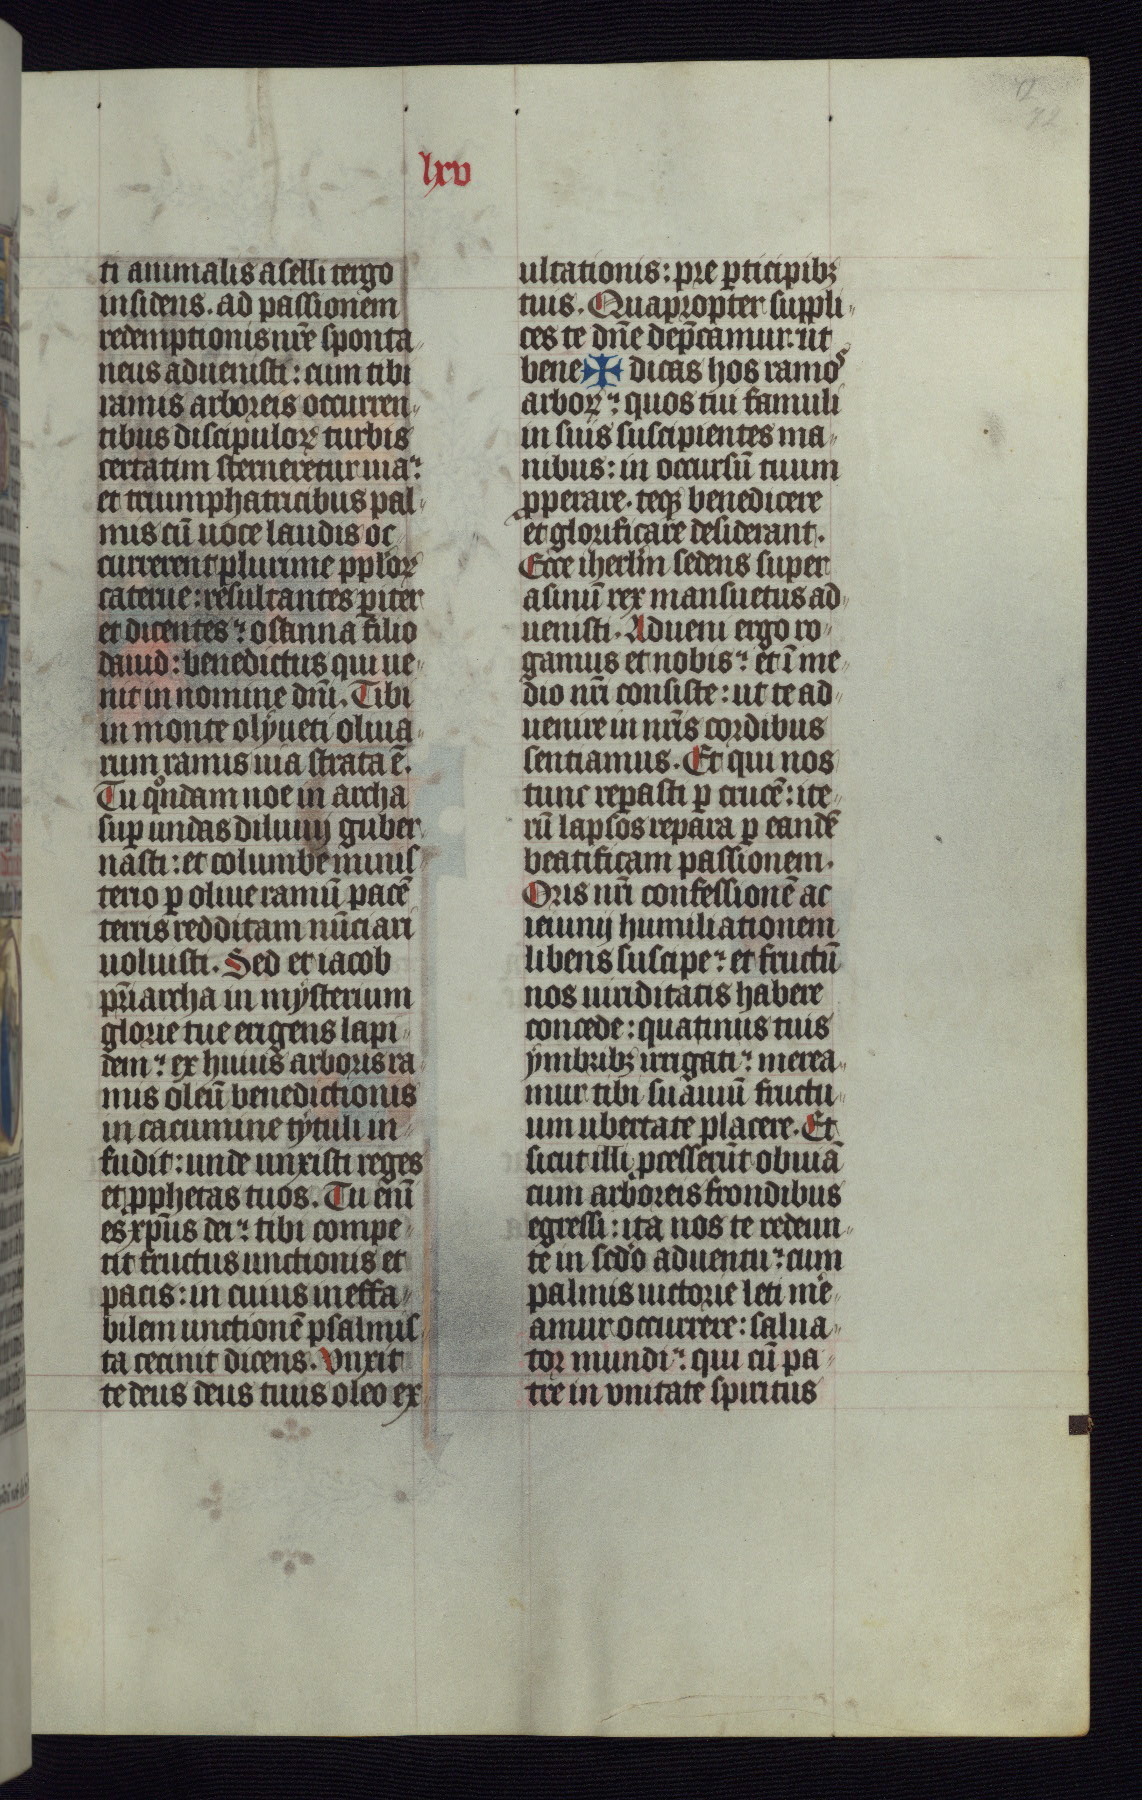 lxv
ti animalis aselli tergo
insidens. ad passionem
redemptionis nr̄e sponta
neus aduenisti: cum tibi
ramis arboreis occurren
tibus discipuloꝝ turbis
certatim sterneretur uia:
et triumphatricibus pal
mis cū uoce laudis oc
currerent plurime pploꝝ
caterue: resultantes pit̄er
et dicentes: osanna filio
dauid: benedictus qui ue
nit in nomine dn̄i. Tibi
in monte olyueti oliua
rum ramis uia strata ē.
Tu qͦndam noe in archa
suꝑ undas diluuij guber
nasti: et columbe minis
terio ꝑ oliue ramū pacē
terris redditam nūciari
uoluisti. Sed et iacob
pr̄iarcha in mysterium
glorie tue erigens lapi
dem: ex huius arboris ra
mis oleū benedictionis
in cacumine tytuli in
fudit: unde unxisti reges
et ꝓphetas tuos. Tu enī
es xp̄us dei: tibi compe
tit fructus unctionis et
pacis: in cuius ineffa
bilem unctionē psalmis
ta cecinit dicens. Vnxit
te deus deus tuus oleo ex
ultationis: pre ꝑticipibꝫ
tuis. Quapropter suppli
ces te dn̄e dep̄camur: ut
bene ✠ dicas hos ramos
arboꝝ: quos tui famuli
in suis suscipientes ma
nibus: in occursū tuum
ꝓperare. teqꝫ benedicere
et glorificare desiderant.
Ecce iherlm̄ sedens super
asinū rex mansuetus ad
uenisti. Adueni ergo ro
gamus et nobis: et ī me
dio nr̄i consiste: ut te ad
uenire in nr̄is cordibus
sentiamus. Et qui nos
tunc reparasti ꝑ crucē: ite
rū lapsos repara ꝑ eandē
beatificam passionem.
Oris nr̄i confessionē ac
ieiunij humiliationem
libens suscipe: et fructū
nos uiriditatis habere
concede: quatinus tuis
ymbribꝫ irrigati: merea
mur tibi suauiū fructu
um ubertate placere. Et
sicut illi p̄cesserūt obuiā
cum arboreis frondibus
egressi: ita nos te redeun
te in scdo aduentu: cum
palmis uictorie leti me
amur occurrere: salua
tor mundi: qui cū pa
tre in vnitate spiritus